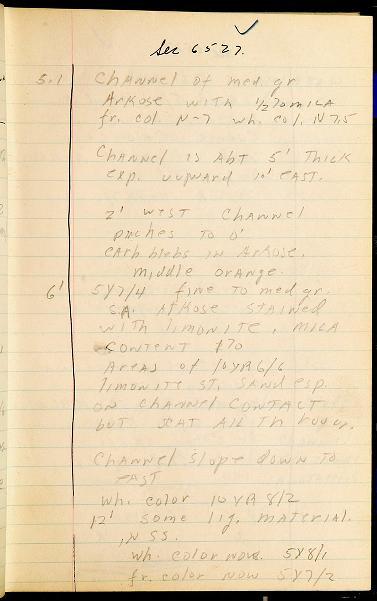 Sec 6527.
5.1 Channel of med. gr.
Arkose with 1/2% mica
fr. col. N-7 wh. col. N 7.5
Channel is Abt 5' thick
exp. upward 10' east.
2' west channel
pinches to 0'
carb blebs in Arkose.
middle orange.
6' 5Y7/4 fine to med gr.
SA. Arkose stained
with limonite, mica
content 1%
Areas of 10YR6/6
limonite st. sand esp.
on channel contact
but scat all through.
Channel slope down to
east
wh. color 10YR 8/2
12' some lig. material.
in SS.
wh. color now. 5Y8/1
fr. color now 5Y7/2